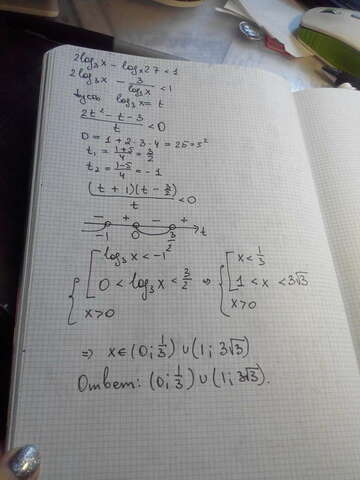 2log₃x - logₓ27 < 1
2log₃x - 3/log₃x < 1
Пусть log₃x = t
(2t² - t - 3)/t < 0
D = 1 + 2·3·4 = 25 = 5²
t₁ = (1+5)/4 = 3/2
t₂ = (1-5)/4 = -1
((t + 1)(t - 3/2))/t < 0
- + - +
-1 0 3/2 t
{ [ log₃x < -1 ; 0 < log₃x < 3/2 ; x > 0 ⇒ { [ x < 1/3 ; 1 < x < 3√3 ; x > 0
⇒ x ∈ (0; 1/3) ∪ (1; 3√3)
Ответ: (0; 1/3) ∪ (1; 3√3).